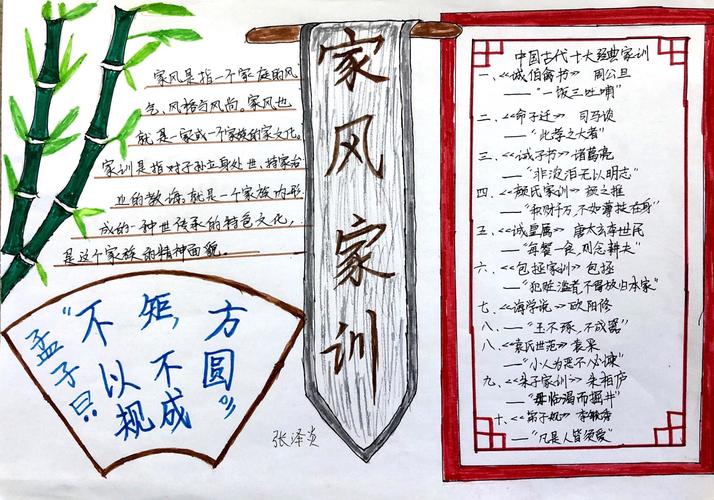 家风是指一个家庭的风
气、风格与风尚。家风也
就是一家或一个家族的家文化。
家训是指对子孙立身处世、持家治
业的教诲,就是一个家族内形
成的一种世传承的特色文化,
是这个家族的精神面貌。
家风家训
孟子曰:
"不以规
矩,不成
方圆"。
张泽炎
中国古代十大经典家训
一、《诫伯禽书》 周公旦
——"一饭三吐哺"
二、《命子迁》 司马谈
——"此孝之大者"
三、《诫子书》诸葛亮
——"非淡泊无以明志"
四、《颜氏家训》颜之推
——"积财千万,不如薄技在身"
五、《诫皇属》 唐太宗李世民
——"每餐一食,则念耕夫"
六、《包拯家训》包拯
——"犯赃滥者不得放归本家"
七、《诲学说》欧阳修
八、——"玉不琢,不成器"
八、《袁氏世范》袁采
——"小人为恶不必谏"
九、《朱子家训》朱柏庐
——"毋临渴而掘井"
十、《弟子规》李毓秀
——"凡是人皆须爱"